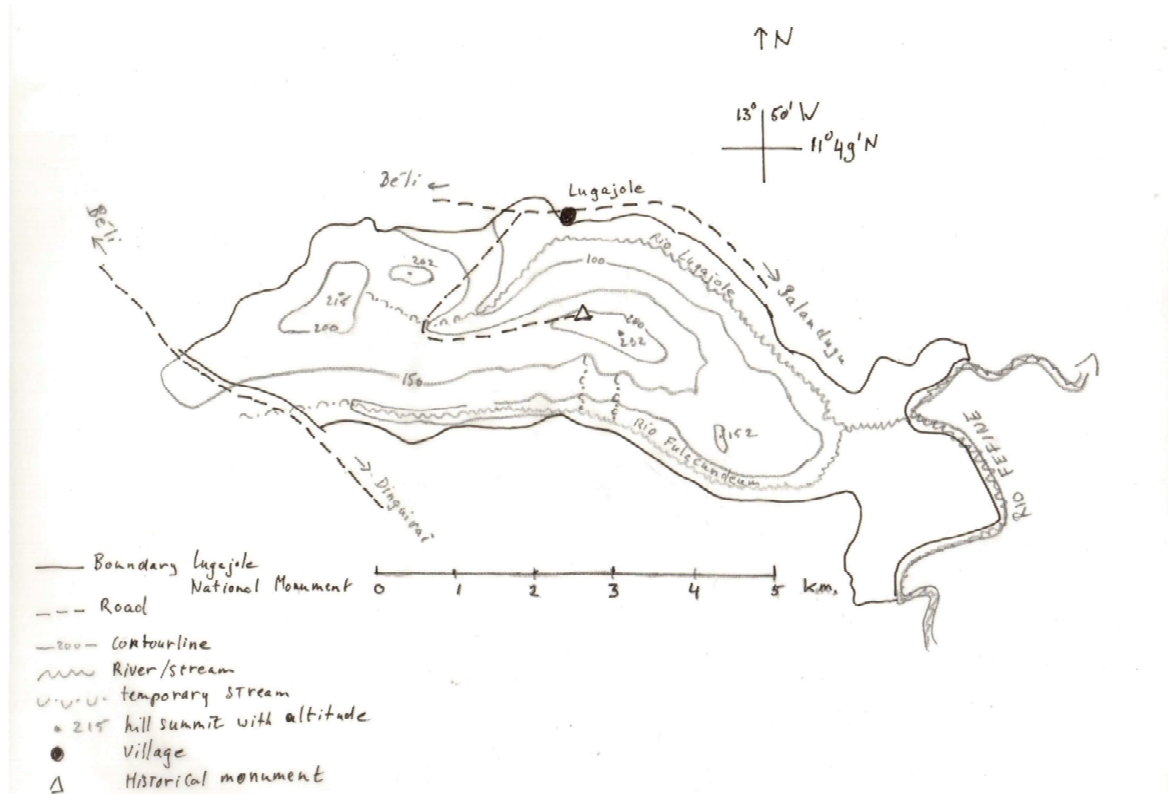 ↑N
13° 50' W
11°49'N
Béli ←
Lugajole
Béli
Rio Lugajole
100
202
215
200
200
232
Balandugu
150
152
Rio Fulecundeum
RIO FEFINE
Dinguirai
Boundary Lugajole
National Monument
0 1 2 3 4 5 km.
Road
200 contourline
River/stream
temporary stream
215 hill summit with altitude
Village
Historical monument